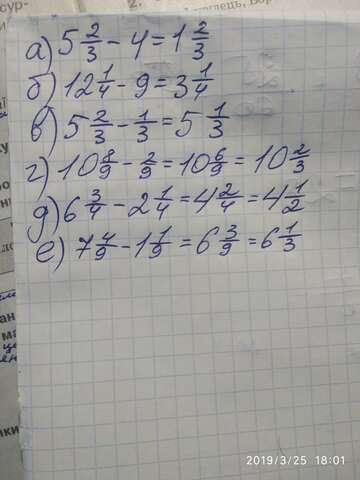 сур-
2.
а) 5 2/3 - 4 = 1 2/3
б) 12 1/4 - 9 = 3 1/4
в) 5 2/3 - 1/3 = 5 1/3
г) 10 8/9 - 2/9 = 10 6/9 = 10 2/3
д) 6 3/4 - 2 1/4 = 4 2/4 = 4 1/2
е) 7 4/9 - 1 1/9 = 6 3/9 = 6 1/3
2019/3/25 18:01